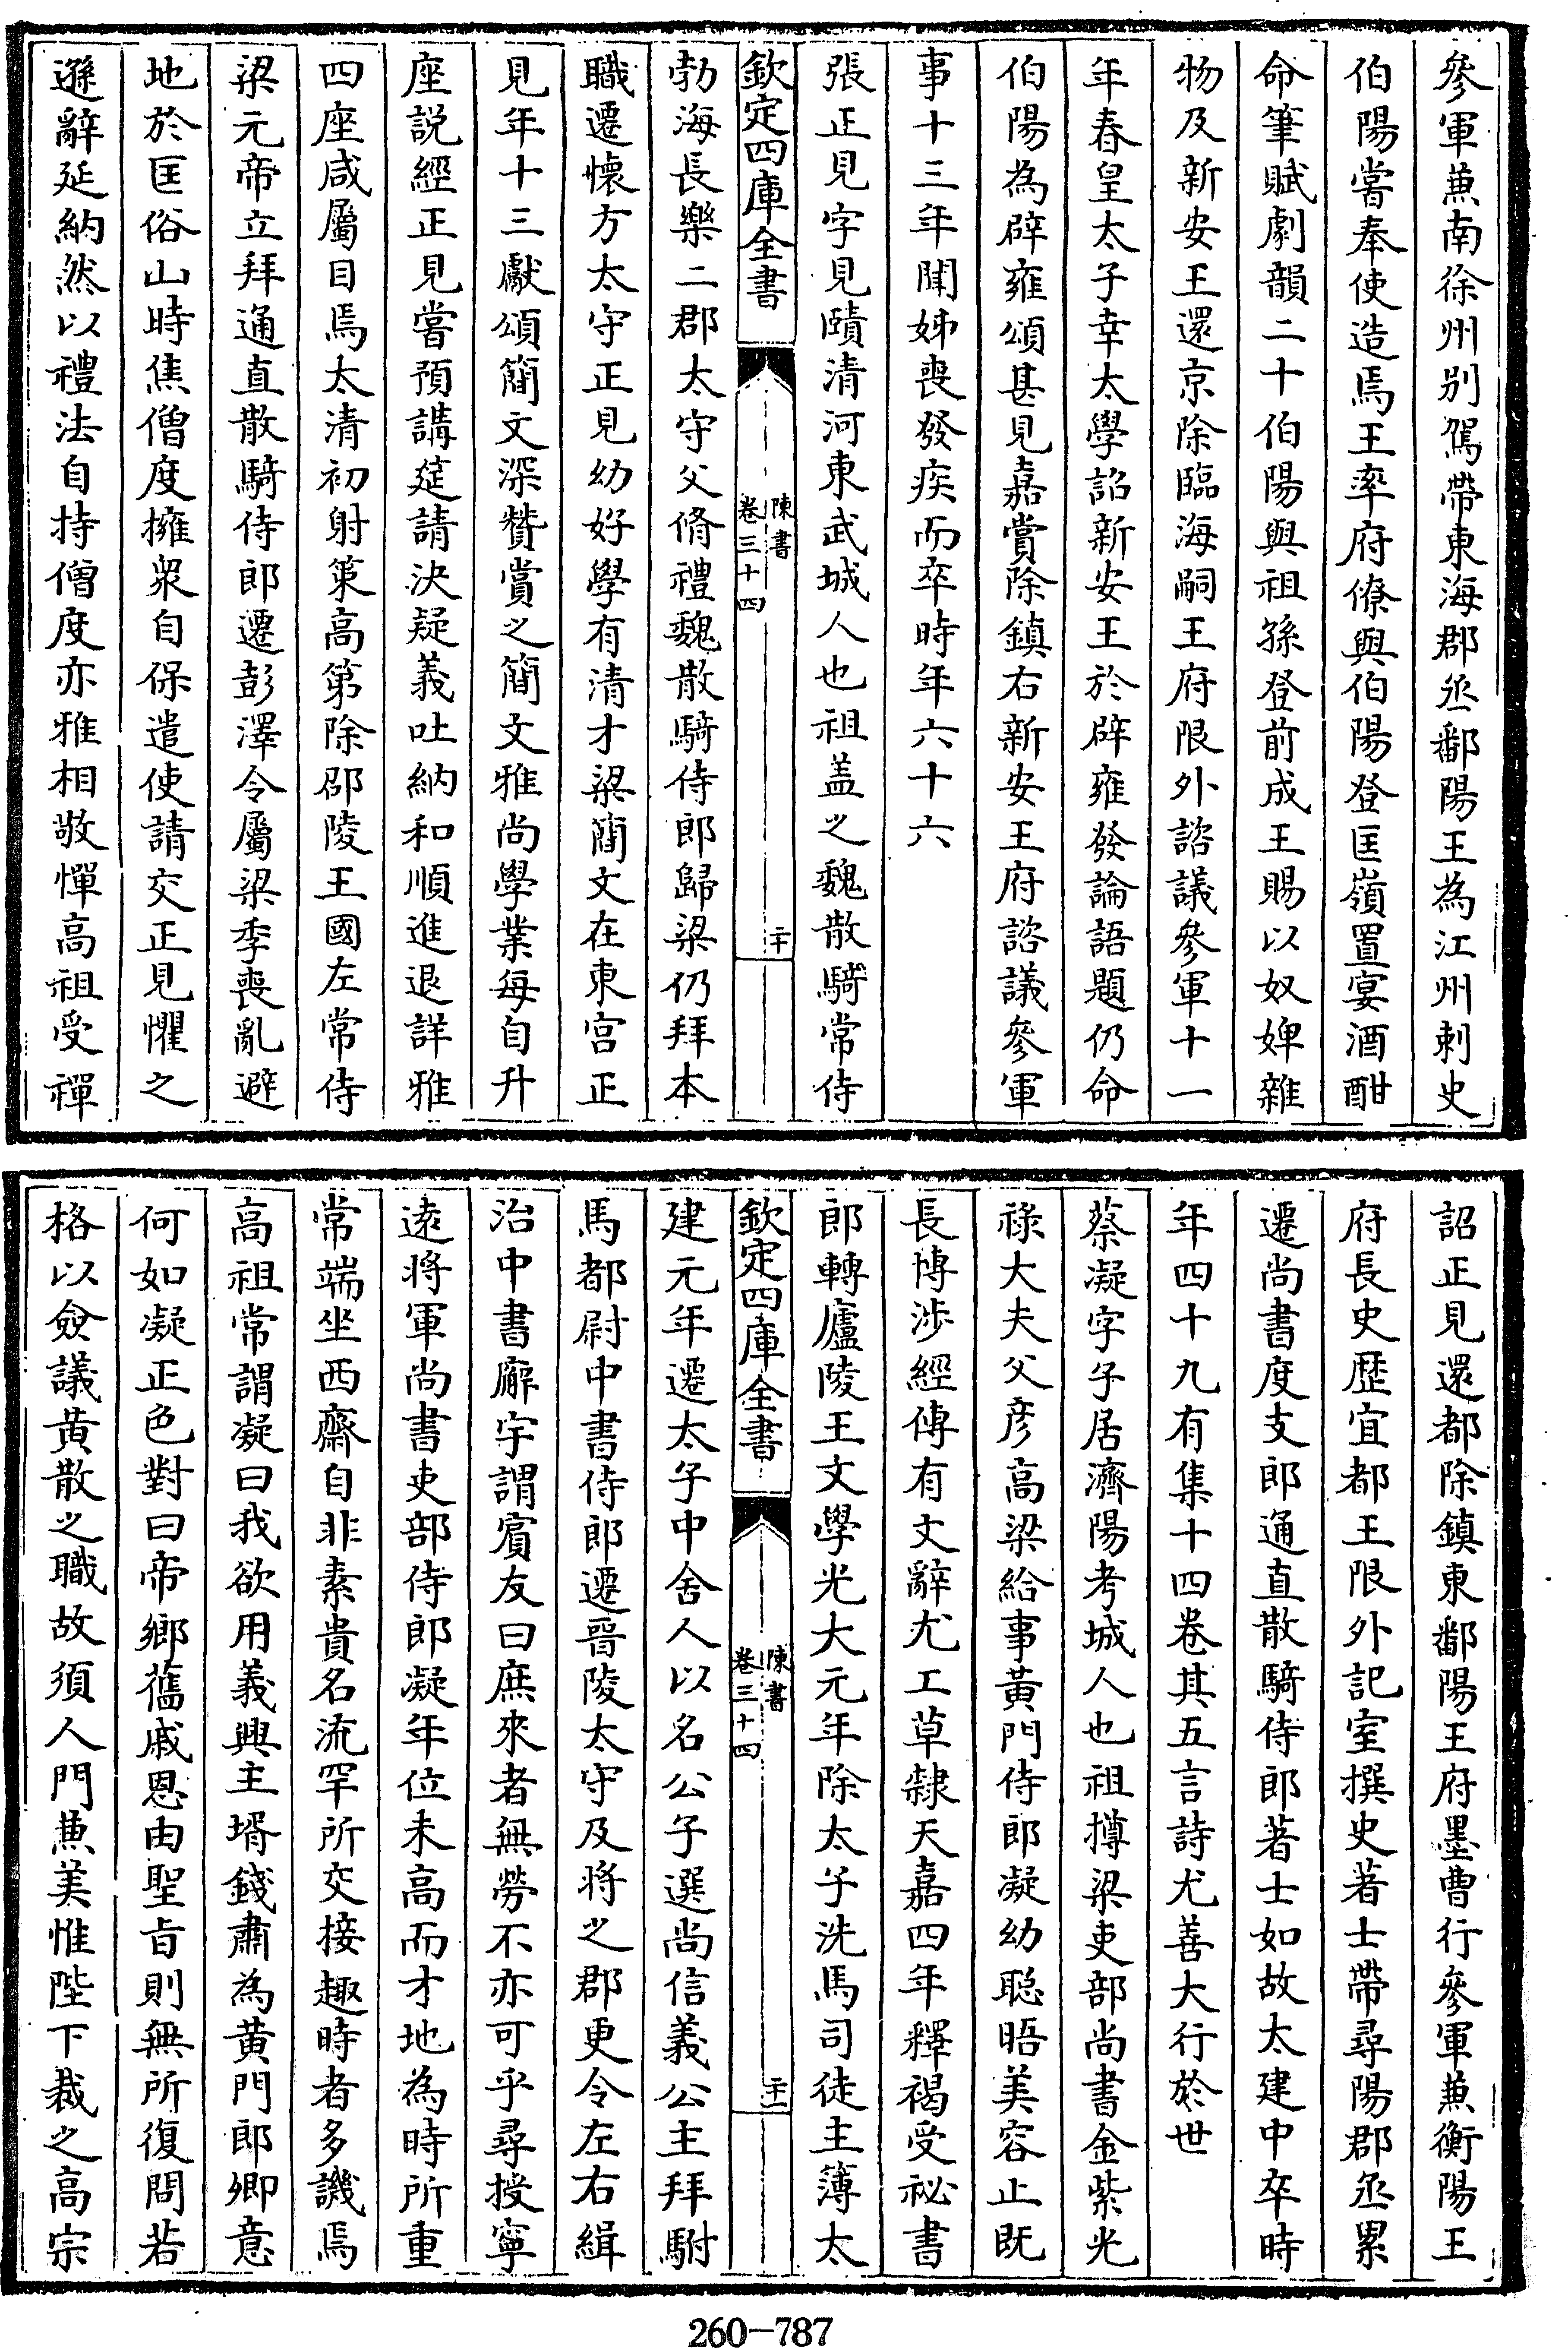 參軍兼南徐州别駕帶東海郡丞鄱陽王為江州刺史
伯陽嘗奉使造焉王率府僚與伯陽登匡嶺置宴酒酣
命筆賦劇韻二十伯陽與祖孫登前成王賜以奴婢雜
物及新安王還京除臨海嗣王府限外諮議參軍十一
年春皇太子幸太學詔新安王於辟雍發論語題仍命
伯陽為辟雍頌甚見嘉賞除鎮右新安王府諮議參軍
事十三年聞姊喪發疾而卒時年六十六
張正見字見賾清河東武城人也祖盖之魏散騎常侍
欽定四庫全書
陳書
卷三十四
二十
勃海長樂二郡太守父脩禮魏散騎侍郎歸梁仍拜本
職遷懷方太守正見幼好學有清才梁簡文在東宫正
見年十三獻頌簡文深贊賞之簡文雅尚學業每自升
座説經正見嘗預講筵請決疑義吐納和順進退詳雅
四座咸屬目焉太清初射策高第除邵陵王國左常侍
梁元帝立拜通直散騎侍郎遷彭澤令屬梁季喪亂避
地於匡俗山時焦僧度擁衆自保遣使請交正見懼之
遜辭延納然以禮法自持僧度亦雅相敬憚高祖受禪
詔正見還都除鎮東鄱陽王府墨曹行參軍兼衡陽王
府長史歷宜都王限外記室撰史著士帶尋陽郡丞累
遷尚書度支郎通直散騎侍郎著士如故太建中卒時
年四十九有集十四卷其五言詩尤善大行於世
蔡凝字子居濟陽考城人也祖撙梁吏部尚書金紫光
祿大夫父彦高梁給事黄門侍郎凝幼聰晤美容止既
長博涉經傳有文辭尤工草隸天嘉四年釋褐受祕書
郎轉廬陵王文學光大元年除太子洗馬司徒主簿太
欽定四庫全書
陳書
卷三十四
二十一
建元年遷太子中舍人以名公子選尚信義公主拜駙
馬都尉中書侍郎遷晉陵太守及將之郡更令左右緝
治中書廨宇謂賓友曰庶來者無勞不亦可乎尋授寧
遠將軍尚書吏部侍郎凝年位未高而才地為時所重
常端坐西齋自非素貴名流罕所交接趣時者多譏焉
高祖常謂凝曰我欲用義興主壻錢肅為黄門郎卿意
何如凝正色對曰帝鄉舊戚恩由聖旨則無所復問若
格以僉議黄散之職故須人門兼美惟陛下裁之高宗
260-787